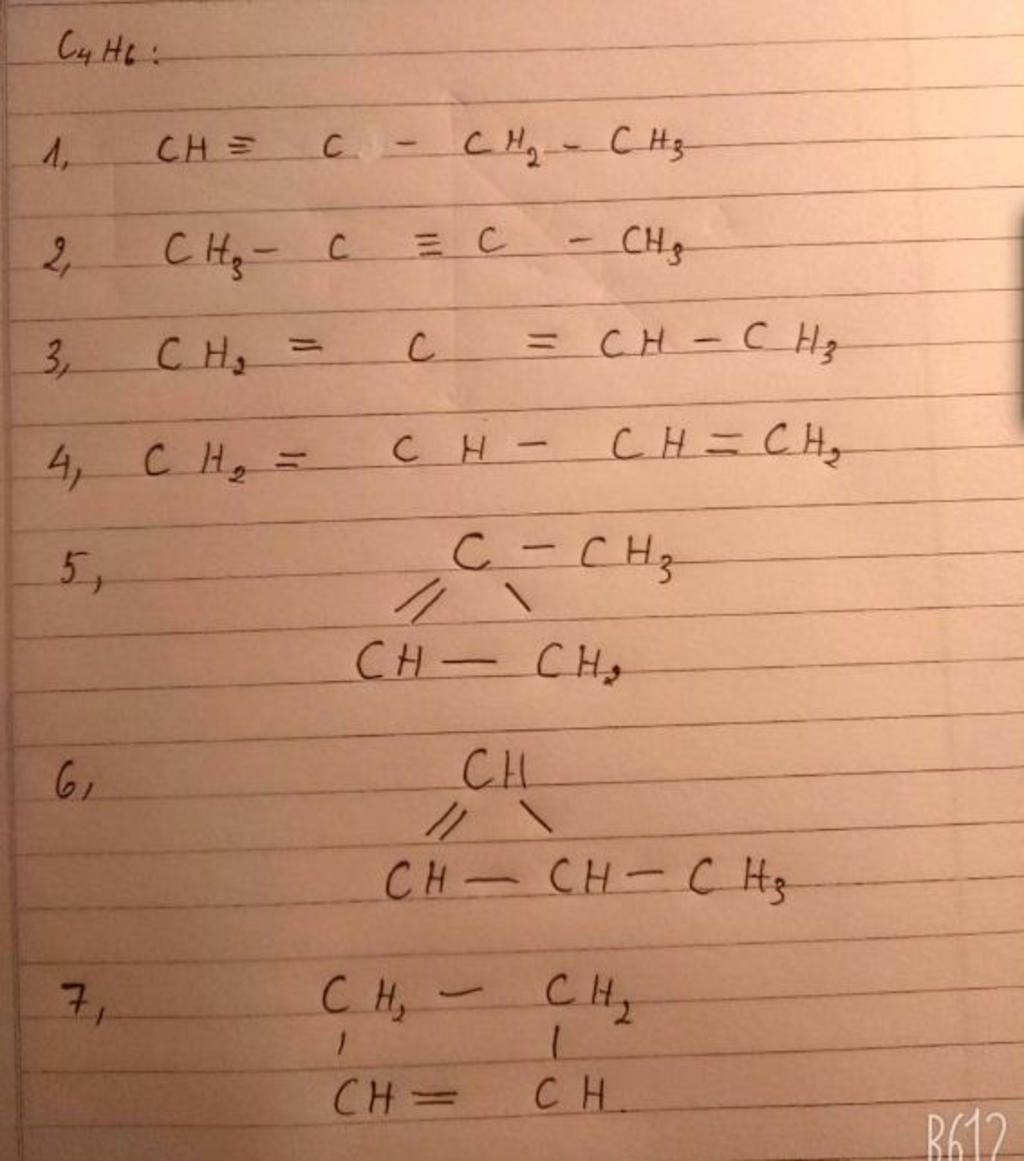 C₄H₆:
1, CH ≡ C - CH₂ - CH₃
2, CH₃ - C ≡ C - CH₃
3, CH₂ = C = CH - CH₃
4, CH₂ = CH - CH = CH₂
5, C - CH₃
// \
CH — CH₂
6, CH
// \
CH — CH — CH₃
7, CH₂ — CH₂
| |
CH = CH
B612